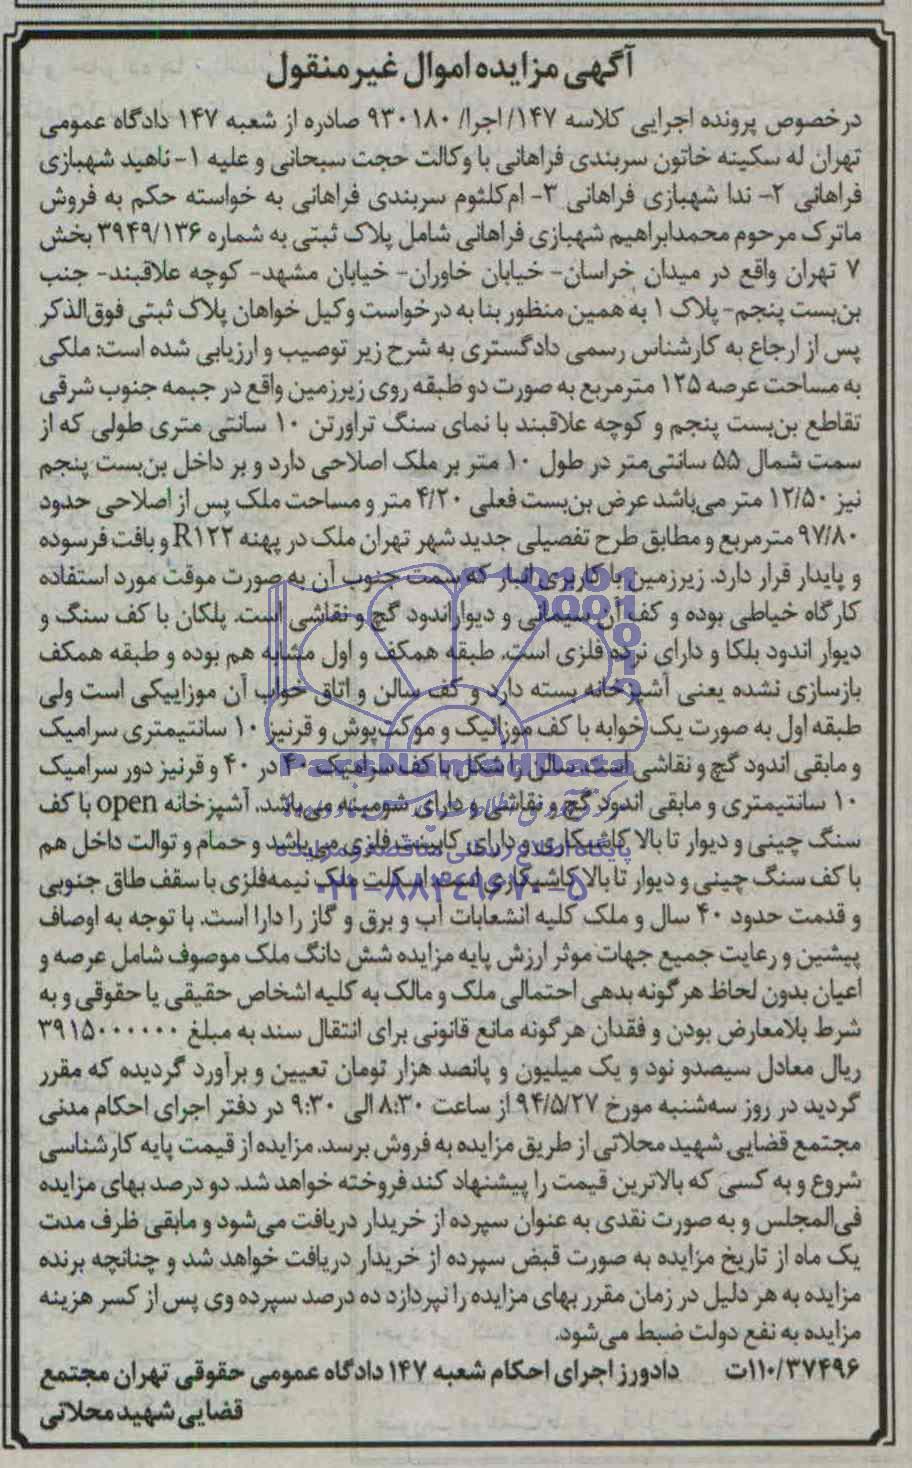 آگهی مزایده اموال غیر منقول
درخصوص پرونده اجرایی کلاسه ۱۴۷/اجرا/ ۹۳۰۱۸۰ صادره از شعبه ۱۴۷ دادگاه عمومی
تهران له سکینه خاتون سربندی فراهانی با وکالت حجت سبحانی و علیه ۱- ناهید شهبازی
فراهانی ۲- ندا شهبازی فراهانی ۳- ام‌کلثوم سربندی فراهانی به خواسته حکم به فروش
ماترک مرحوم محمدابراهیم شهبازی فراهانی شامل پلاک ثبتی به شماره ۳۹۴۹/۱۳۶ بخش
۷ تهران واقع در میدان خراسان- خیابان خاوران- خیابان مشهد- کوچه علاقبند- جنب
بن‌بست پنجم- پلاک ۱ به همین منظور بنا به درخواست وکیل خواهان پلاک ثبتی فوق‌الذکر
پس از ارجاع به کارشناس رسمی دادگستری به شرح زیر توصیب و ارزیابی شده است: ملکی
به مساحت عرصه ۱۲۵ مترمربع به صورت دو طبقه روی زیرزمین واقع در جبمه جنوب شرقی
تقاطع بن‌بست پنجم و کوچه علاقبند با نمای سنگ تراورتن ۱۰ سانتی متری طولی که از
سمت شمال ۵۵ سانتی‌متر در طول ۱۰ متر بر ملک اصلاحی دارد و بر داخل بن‌بست پنجم
نیز ۱۲/۵۰ متر می‌باشد عرض بن‌بست فعلی ۴/۲۰ متر و مساحت ملک پس از اصلاحی حدود
۹۷/۸۰ مترمربع و مطابق طرح تفصیلی جدید شهر تهران ملک در پهنه R۱۲۲ و بافت فرسوده
و پایدار قرار دارد. زیرزمین با کاربری انبار که سمت جنوب آن به صورت موقت مورد استفاده
کارگاه خیاطی بوده و کف آن سیمانی و دیوار اندود گچ و نقاشی است. پلکان با کف سنگ و
دیوار اندود بلکا و دارای نرده فلزی است. طبقه همکف و اول مشابه هم بوده و طبقه همکف
بازسازی نشده یعنی آشپزخانه بسته دارد و کف سالن و اتاق خواب آن موزاییکی است ولی
طبقه اول به صورت یک خوابه با کف موزائیک و موکت‌پوش و قرنیز ۱۰ سانتیمتری سرامیک
و مابقی اندود گچ و نقاشی است. سالن را شکل با کف سرامیک ۴۰ در ۴۰ و قرنیز دور سرامیک
۱۰ سانتیمتری و مابقی اندود گچ و نقاشی و دارای شومینه می‌باشد. آشپزخانه open با کف
سنگ چینی و دیوار تا بالا کاشیکاری و دارای کابینت فلزی می‌باشد و حمام و توالت داخل هم
با کف سنگ چینی و دیوار تا بالا کاشیکاری است. اسکلت ملک نیمه‌فلزی با سقف طاق جنوبی
و قدمت حدود ۴۰ سال و ملک کلیه انشعابات آب و برق و گاز را دارا است. با توجه به اوصاف
پیشین و رعایت جمیع جهات موثر ارزش پایه مزایده شش دانگ ملک موصوف شامل عرصه و
اعیان بدون لحاظ هر گونه بدهی احتمالی ملک و مالک به کلیه اشخاص حقیقی یا حقوقی و به
شرط بلامعارض بودن و فقدان هر گونه مانع قانونی برای انتقال سند به مبلغ ۳۹۱۵۰۰۰۰۰۰
ریال معادل سیصدو نود و یک میلیون و پانصد هزار تومان تعیین و برآورد گردیده که مقرر
گردید در روز سه‌شنبه مورخ ۹۴/۵/۲۷ از ساعت ۸:۳۰ الی ۹:۳۰ در دفتر اجرای احکام مدنی
مجتمع قضایی شهید محلاتی از طریق مزایده به فروش برسد. مزایده از قیمت پایه کارشناسی
شروع و به کسی که بالاترین قیمت را پیشنهاد کند فروخته خواهد شد. دو درصد بهای مزایده
فی‌المجلس و به صورت نقدی به عنوان سپرده از خریدار دریافت می‌شود و مابقی ظرف مدت
یک ماه از تاریخ مزایده به صورت قبض سپرده از خریدار دریافت خواهد شد و چنانچه برنده
مزایده به هر دلیل در زمان مقرر بهای مزایده را نپردازد ده درصد سپرده وی پس از کسر هزینه
مزایده به نفع دولت ضبط می‌شود.
۱۱۰/۳۷۴۹۶ت دادورز اجرای احکام شعبه ۱۴۷ دادگاه عمومی حقوقی تهران مجتمع
قضایی شهید محلاتی
ParsNamadData
پایگاه اطلاع رسانی مناقصه و مزایده